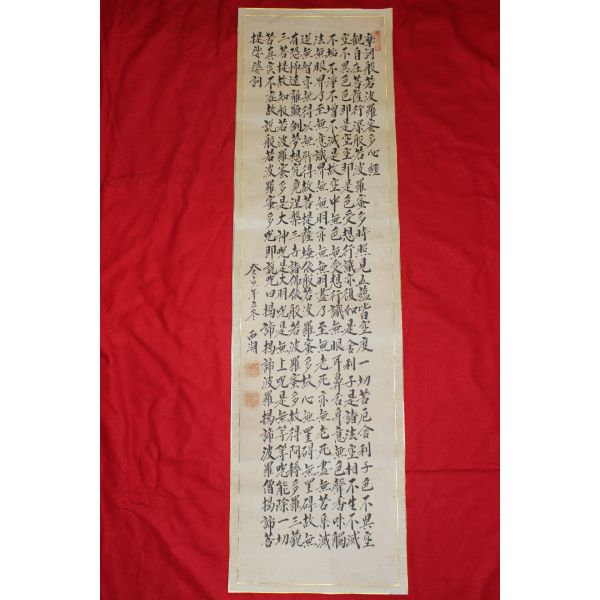 摩訶般若波羅蜜多心經
觀自在菩薩行深般若波羅蜜多時照見五蘊皆空度一切苦厄舍利子色不異空
空不異色色即是空空即是色受想行識亦復如是舍利子是諸法空相不生不滅
不垢不淨不增不減是故空中無色無受想行識無眼耳鼻舌身意無色聲香味觸
法無眼界乃至無意識界無無明亦無無明盡乃至無老死亦無老死盡無苦集滅
道無智亦無得以無所得故菩提薩埵依般若波羅蜜多故心無罣碍無罣碍故無
有恐怖遠離顛倒夢想究竟涅槃三世諸佛依般若波羅蜜多故得阿耨多羅三藐
三菩提故知般若波羅蜜多是大神呪是大明呪是無上呪是無等等呪能除一切
苦真实不虛故說般若波羅蜜多呪即說呪曰揭諦揭諦波羅揭諦波羅僧揭諦菩
提娑婆訶
癸亥年冬 西湖